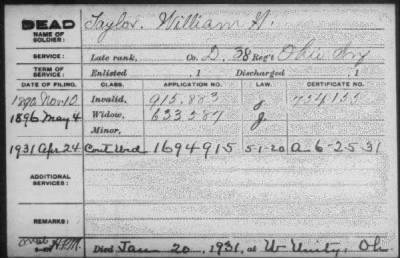 DEAD
NAME OF SOLDIER: Taylor. William H.
SERVICE: Late rank, Co. D, 38 Reg't Ohio Inf
TERM OF SERVICE: Enlisted , 1 Discharged , 1
DATE OF FILING. CLASS. APPLICATION NO. LAW. CERTIFICATE NO.
1890 Nov 10 Invalid, 915.883 J
1896 May 4 Widow, 633587 J.
Minor,
1931 Apr 24 1694915 5-1-20 A-6-25-31
ADDITIONAL SERVICES:
REMARKS:
Died Jan 20, 1931, at W. Unity, Oh